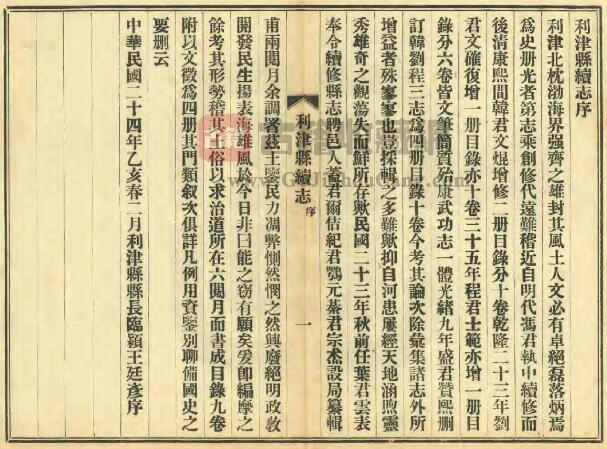 利津縣續志序
利津北枕渤海界強齊之雄封其風土人文必有卓絕磊落炳焉
爲史册光者第志乘創修代遠難稽近自明代馮君執中續修而
後清康熙間韓君文焜增修二册目錄分十卷乾隆二十三年劉
君文確復增一册目錄亦十卷三十五年程君士範亦增一册目
錄分六卷皆文筆簡質殆康武功志一體光緒九年盛君贊熙刪
訂韓劉程三志爲四册目錄十卷今考其論次除彙集諸志外所
增益者殊寥寥也豈採輯之多難歟抑自河患屢經天地涵煦靈
秀雄奇之觀蕩失而鮮所存歟民國二十三年秋前任葉君雲表
奉令續修縣志聘邑人蓋君爾佶紀君鶚元綦君宗杰設局纂輯
利津縣續志
序
一
甫兩閱月余調署茲土鑒民力凋弊惻然憫之然興廢絕明政教
開發民生揚表海雄風於今日非曰能之竊有願矣爰卽編摩之
餘考其形勢稽其土俗以求治道所在六閱月而書成目錄九卷
附以文徵爲四册其門類叙次俱詳凡例用資鑒別聊備國史之
要刪云
中華民國二十四年乙亥春二月利津縣縣長臨潁王廷彥序